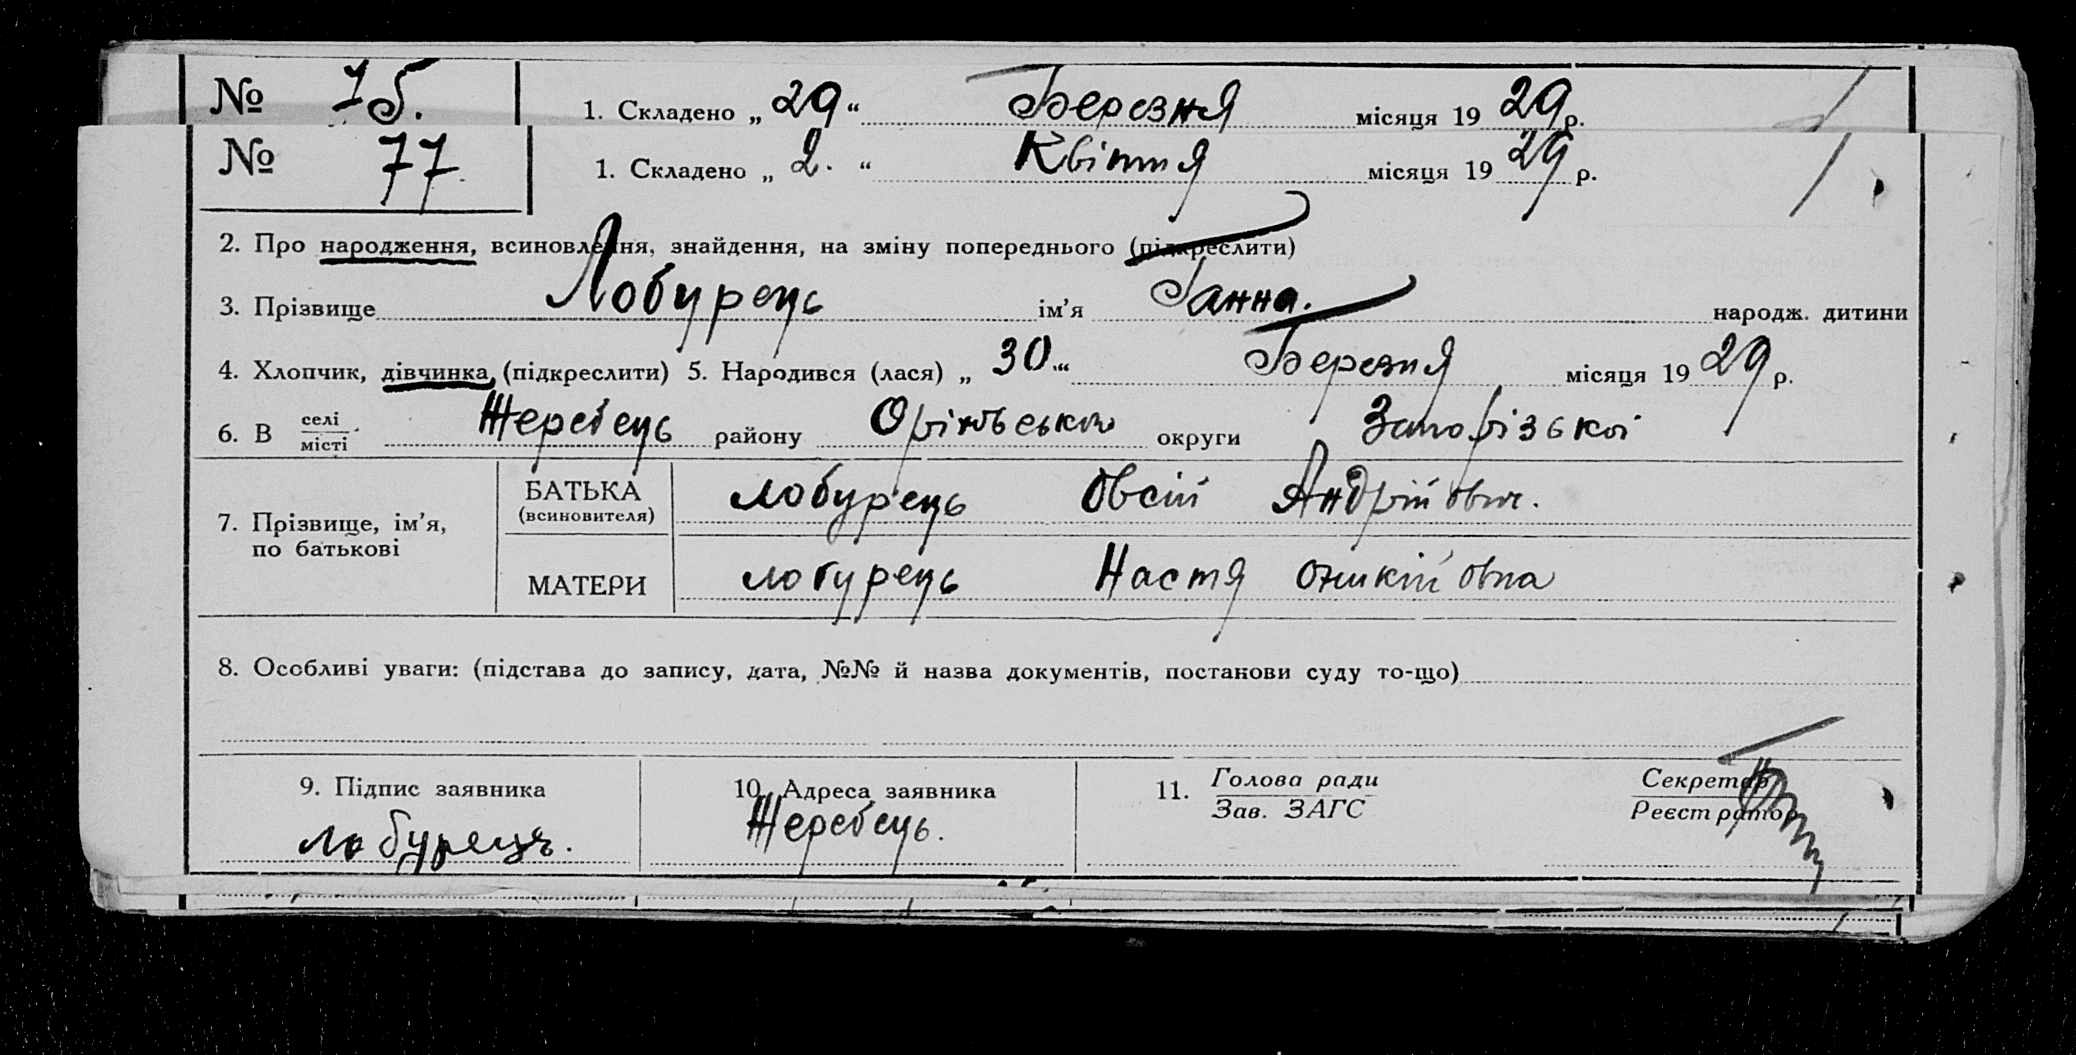 № 75. 1. Складено „ 29 “ Березня місяця 19 29 р.
№ 77. 1. Складено „ 2. “ Квітня місяця 19 29 р.
2. Про народження, всиновлення, знайдення, на зміну попереднього (підкреслити)
3. Прізвище Лобурець ім’я Ганна. народж. дитини
4. Хлопчик, дівчинка, (підкреслити) 5. Народився (лася) „ 30 “ Березня місяця 19 29 р.
6. В селі/місті Жеребець району Оріхівського округи Запорізької
7. Прізвище, ім’я, по батькові
БАТЬКА (всиновителя) Лобурець Овсій Андрійович.
МАТЕРИ Лобурець Настя Оникійовна
8. Особливі уваги: (підстава до запису, дата, №№ й назва документів, постанови суду то-що)
9. Підпис заявника 10. Адреса заявника 11. Голова ради / Зав. ЗАГС Секретар / Реєстратор
Лобурець. Жеребець.